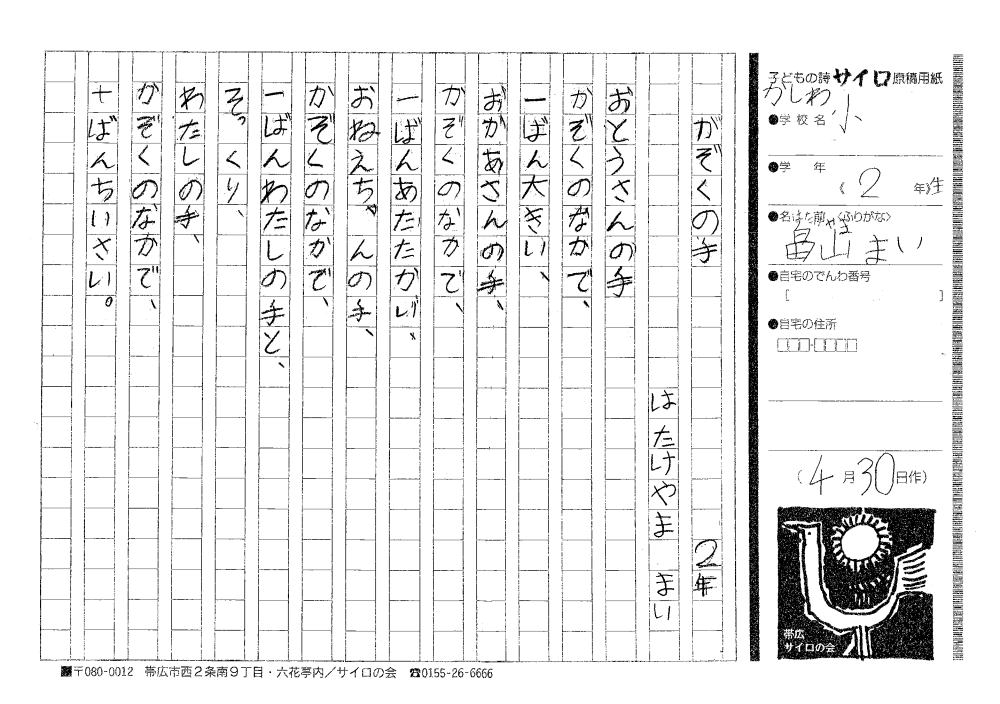 かぞくの手
2年
はたけやま まい
おとうさんの手
かぞくのなかで、
一ばん大きい、
おかあさんの手、
かぞくのなかで、
一ばんあたたかい、
おねえちゃんの手、
かぞくのなかで、
一ばんわたしの手と、
そっくり、
わたしの手、
かぞくのなかで、
一ばんちいさい。
子どもの詩 サイロ 原稿用紙
●学校名
かしわ小
●学 年
《 2 年》生
●名 前 〈ふりがな〉
はた やま
畠山 まい
●自宅のでんわ番号
[ ]
●自宅の住所
(4月30日作)
帯広
サイロの会
〒080-0012 帯広市西2条南9丁目・六花亭内/サイロの会 ☎0155-26-6666